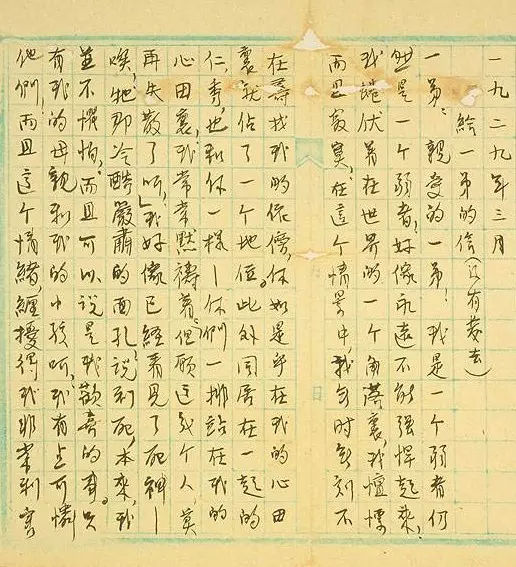 一九二九年三月
給一弟的信(沒有發去)
一弟:親愛的一弟!我是一个弱者,仍
然是一个弱者,好像永遠不能強悍起來,
我蜷伏着在世界的一个角落裏,我
而且寂寞,在這个情景中,我無时無刻不
在尋找我的偶像,你如是乎在我的心田
裏就佔了一个地位。此外同居在一起的
仁、秀,也和你一樣—你們一排站在我的
心田裏,我常常默禱着:但願這幾个人,莫
再失散了呀!我好像已經看見了死神—
唉,牠那冷酷嚴肅的面孔,說到死,本來,我
並不懼怕,而且可以說是我歡喜的事。只
有我的母親和我的小孩呵,我有点可憐
他們,而且這个情緒,纏擾得我非常利害